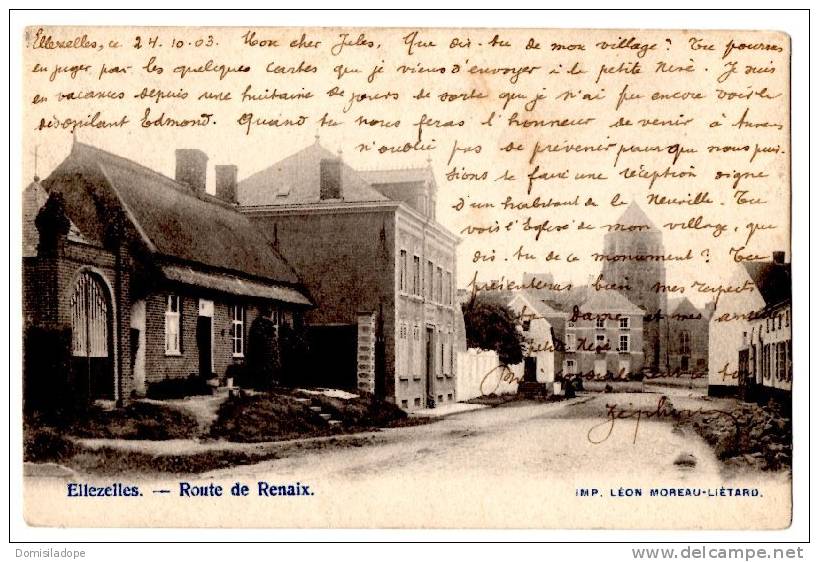 Ellezelles, ce 24.10.03. Mon cher Jules, Que dis-tu de mon village? Tu pourras
en juger par les quelques cartes que je viens d'envoyer à la petite Nisè. Je suis
en vacances depuis une huitaine de jours de sorte que je n'ai pu encore voir le
désopilant Edmond. Quand tu nous feras l'honneur de venir à
n'oublie pas de prévenir pour que nous puis-
sions te faire une réception digne
d'un habitant de la Neuville. Tu
vois l'Eglise de mon village, que
dis-tu de ce monument? Tu
présenteras bien mes respects
à Madame et
petite Nisè
Zéphirin
Ellezelles. — Route de Renaix.
IMP. LÉON MOREAU-LIÉTARD.
Domisiladope
www.delcampe.net